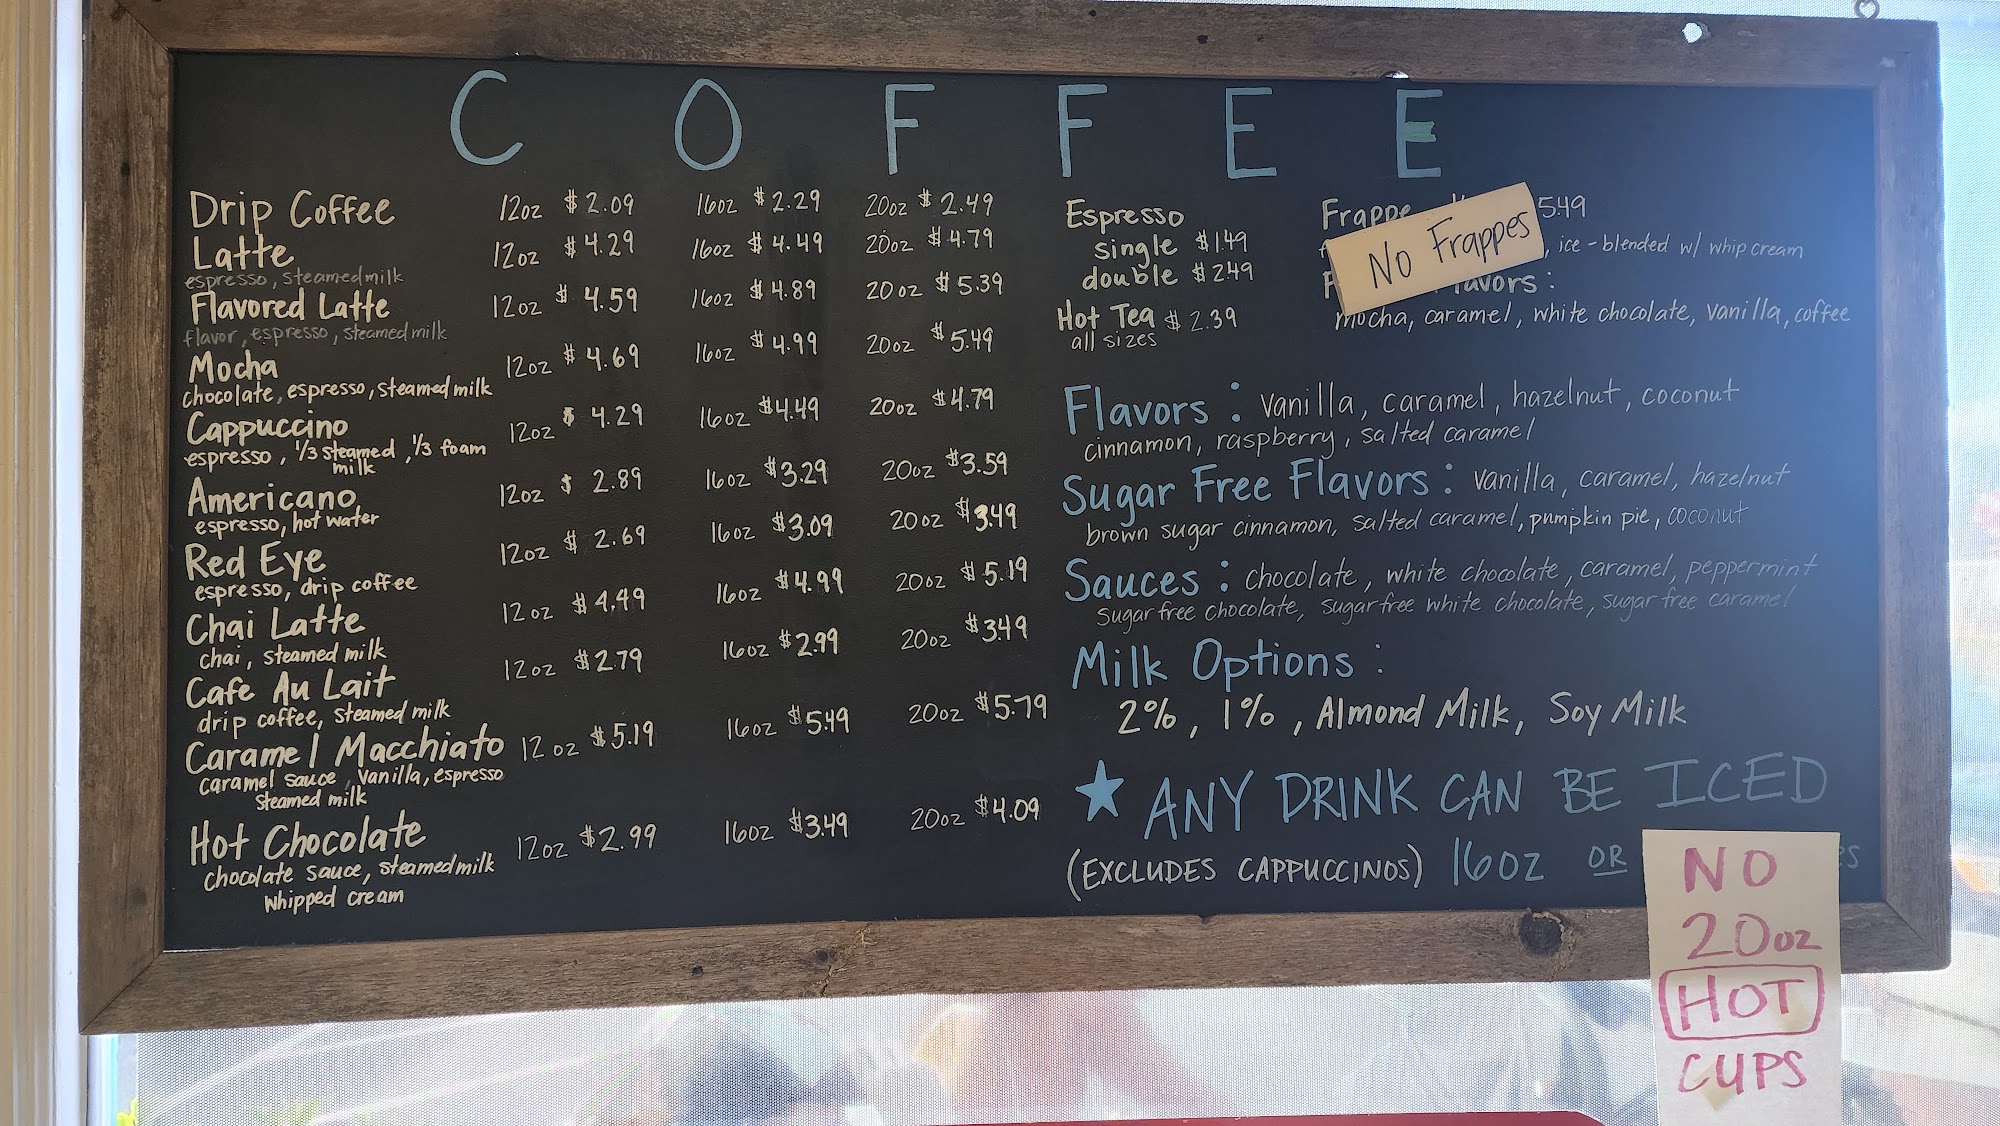 COFFEE
Drip Coffee 12oz $2.09 16oz $2.29 20oz $2.49
Latte 12oz $4.29 16oz $4.49 20oz $4.79
espresso, steamed milk
Flavored Latte 12oz $4.59 16oz $4.89 20oz $5.39
flavor, espresso, steamed milk
Mocha 12oz $4.69 16oz $4.99 20oz $5.49
chocolate, espresso, steamed milk
Cappuccino 12oz $4.29 16oz $4.49 20oz $4.79
espresso, 1/3 steamed, 1/3 foam
milk
Americano 12oz $2.89 16oz $3.29 20oz $3.59
espresso, hot water
Red Eye 12oz $2.69 16oz $3.09 20oz $3.49
espresso, drip coffee
Chai Latte 12oz $4.49 16oz $4.99 20oz $5.19
chai, steamed milk
Cafe Au Lait 12oz $2.79 16oz $2.99 20oz $3.49
drip coffee, steamed milk
Caramel Macchiato 12oz $5.19 16oz $5.49 20oz $5.79
caramel sauce, vanilla, espresso
steamed milk
Hot Chocolate 12oz $2.99 16oz $3.49 20oz $4.09
chocolate sauce, steamed milk
whipped cream
Espresso
single $1.49
double $2.49
Hot Tea $2.39
all sizes
Frappe 5.49
No Frappes
, ice-blended w/ whip cream
mocha, caramel, white chocolate, vanilla, coffee
Flavors: vanilla, caramel, hazelnut, coconut
cinnamon, raspberry, salted caramel
Sugar Free Flavors: vanilla, caramel, hazelnut
brown sugar cinnamon, salted caramel, pumpkin pie, coconut
Sauces: chocolate, white chocolate, caramel, peppermint
sugar free chocolate, sugar free white chocolate, sugar free caramel
Milk Options:
2%, 1%, Almond Milk, Soy Milk
★ ANY DRINK CAN BE ICED
(EXCLUDES CAPPUCCINOS) 16oz OR
NO
20oz
HOT
CUPS